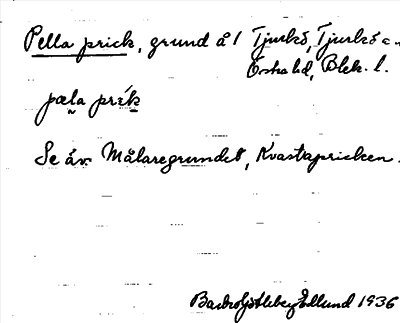 Pella prick, grund å 1 Tjurkö, Tjurkö s.
Östra hd, Blek. l.
pæla prík
Se äv. Målaregrundet, Kvastapricken.
Edlund 1936